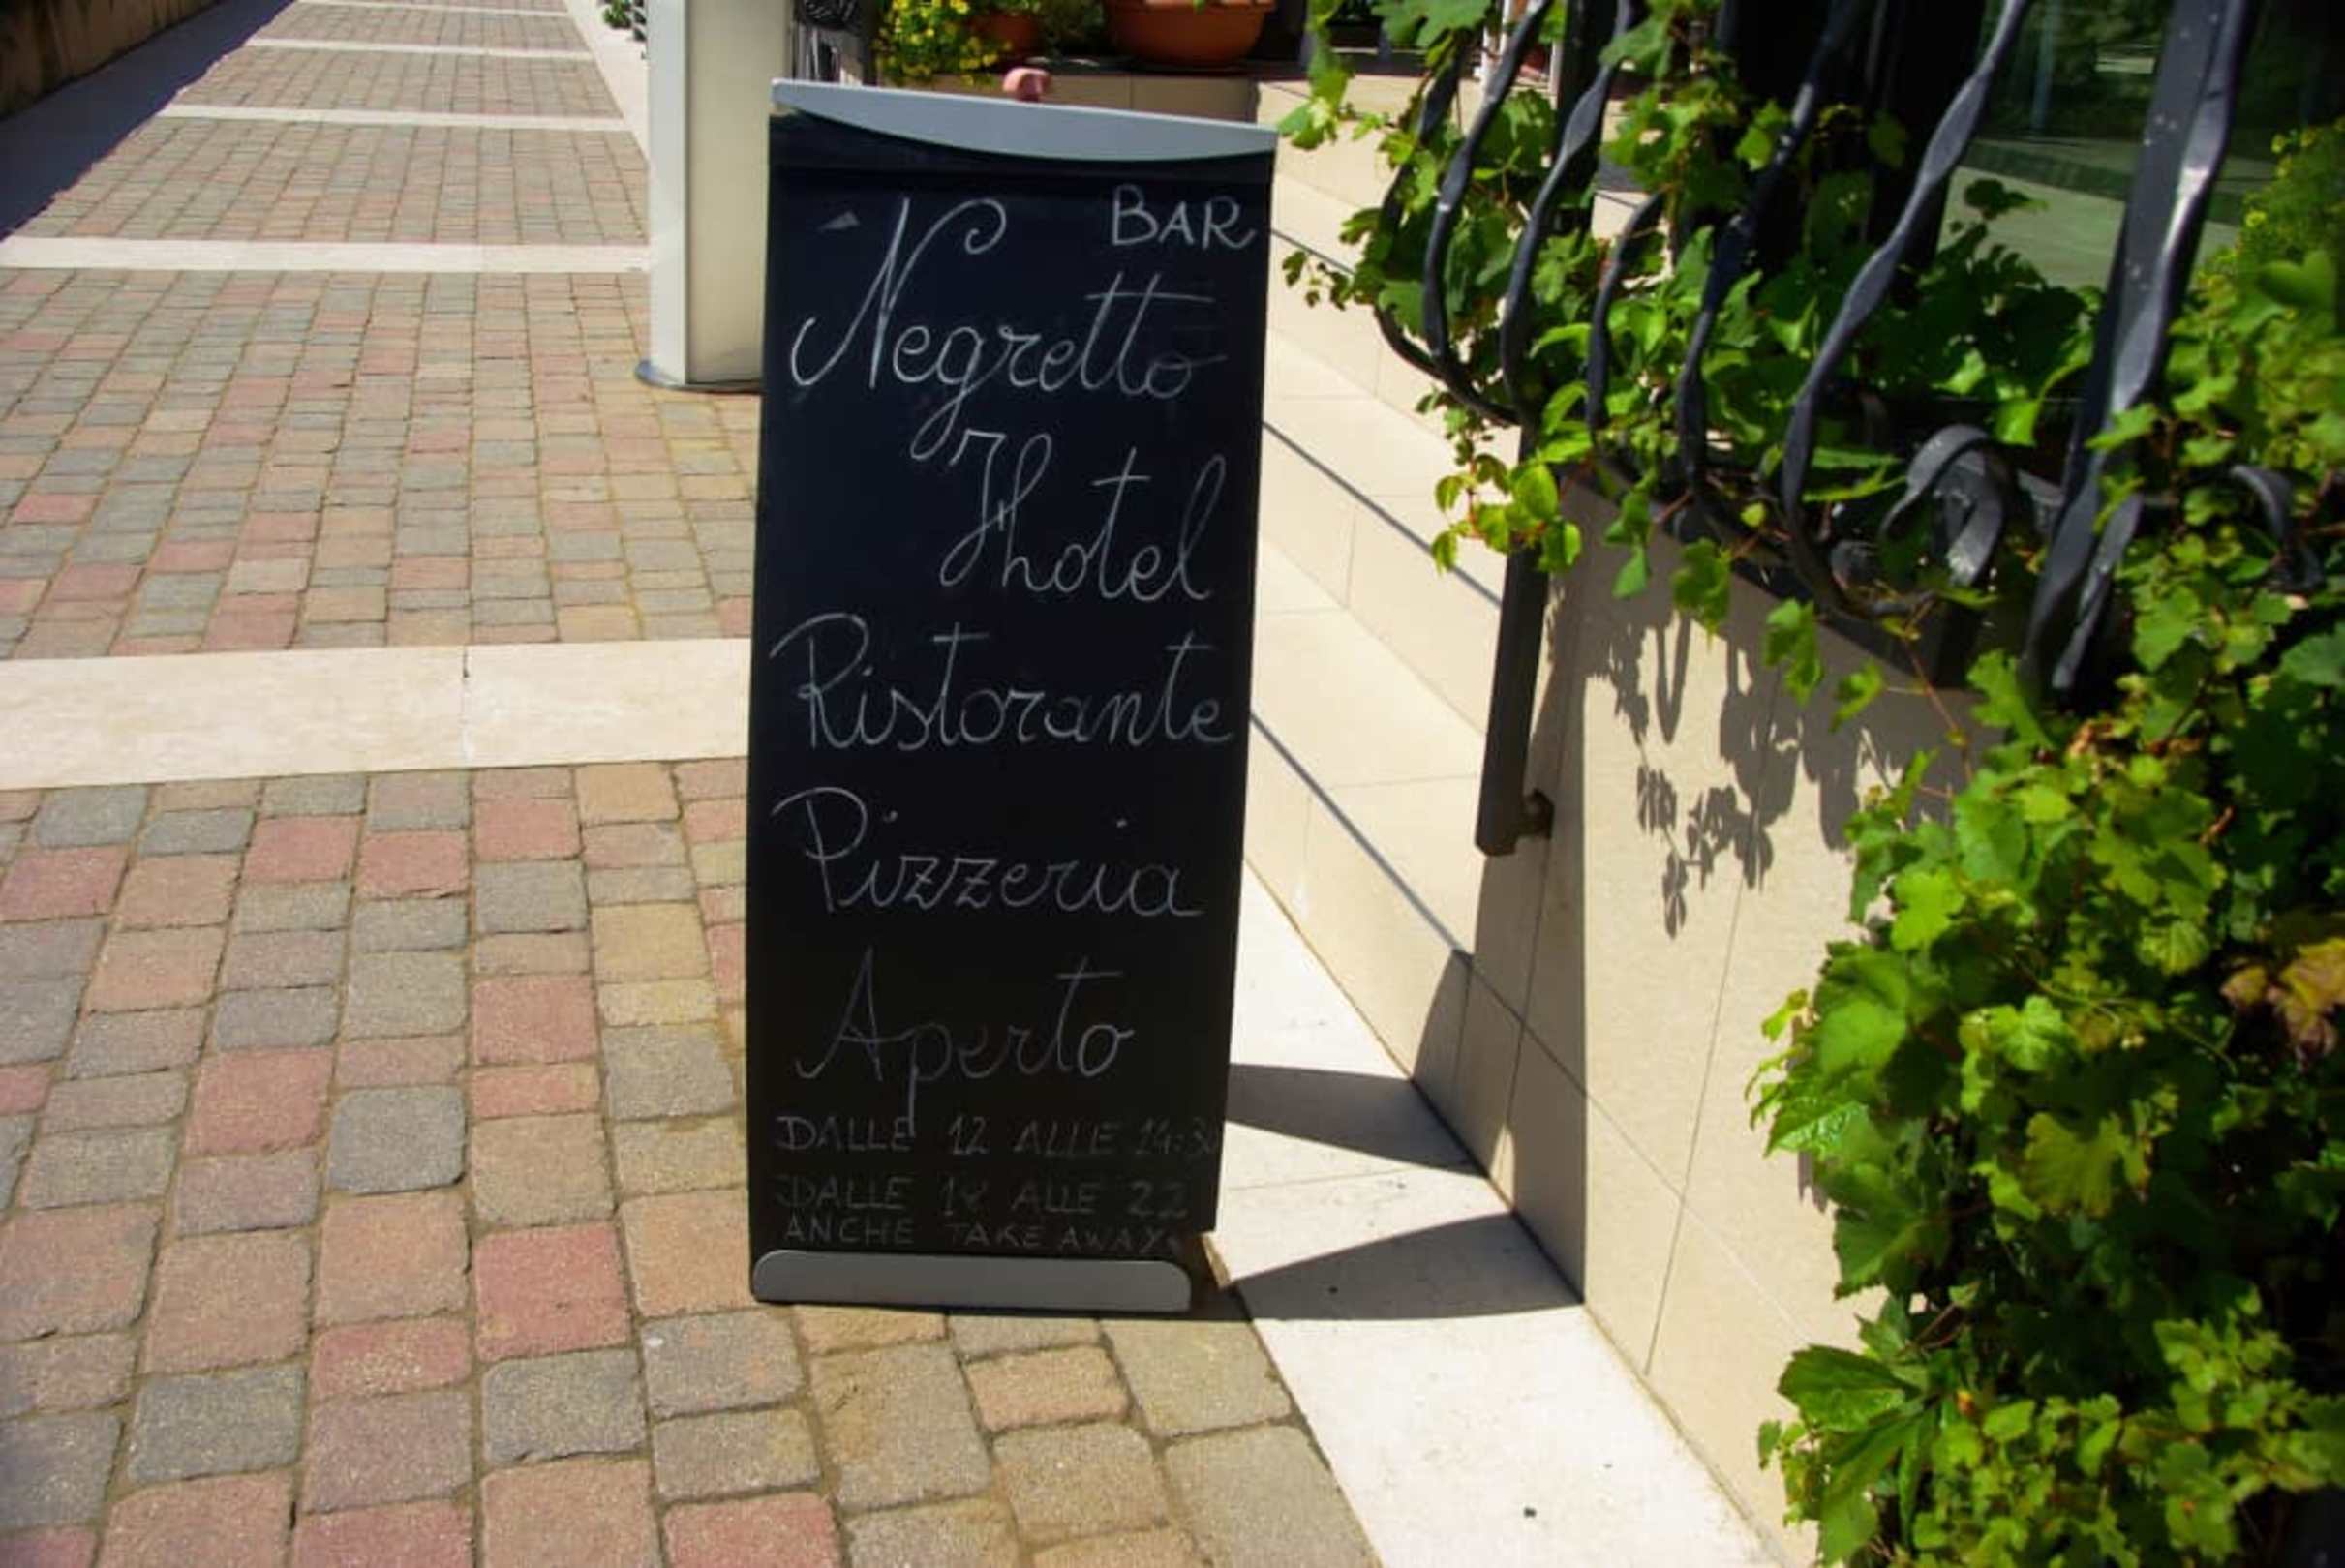 BAR
Negretto
Hotel
Ristorante
Pizzeria
Aperto
DALLE 12 ALLE 14:30
DALLE 18 ALLE 22
ANCHE TAKE AWAY